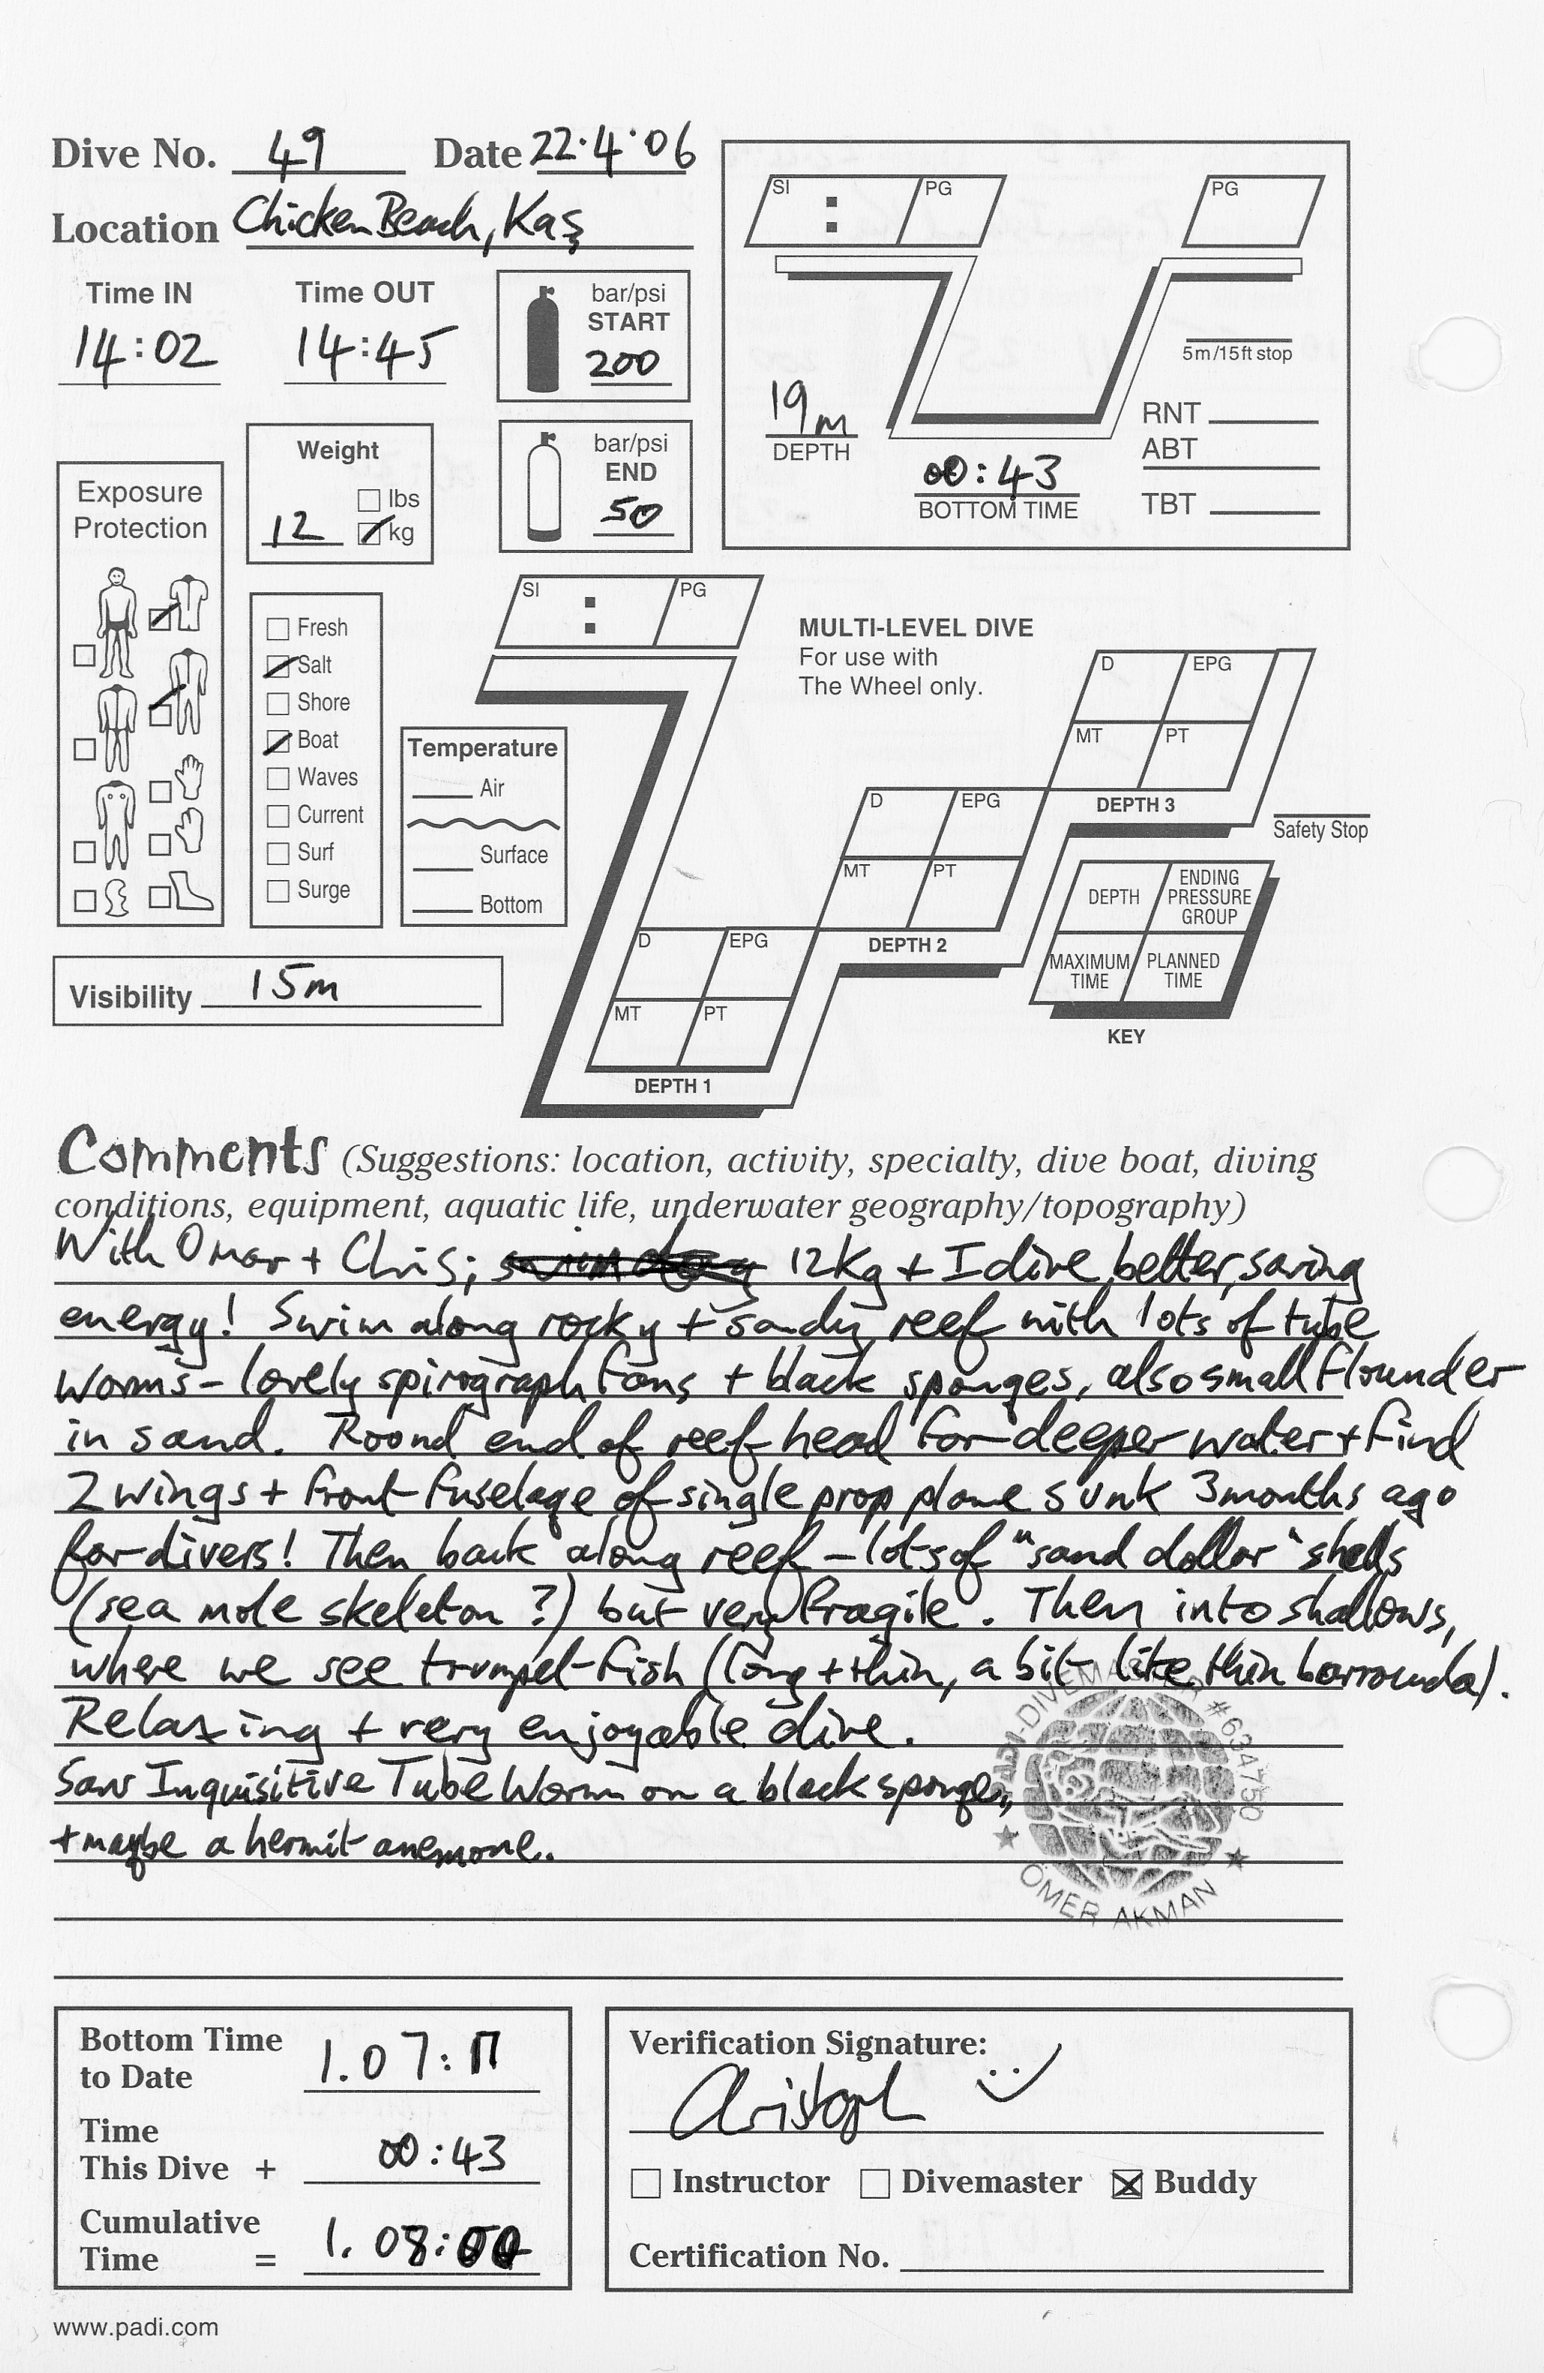 Dive No. 49 Date 22·4·06
Location Chicken Beach, Kaş
Time IN Time OUT
14:02 14:45
bar/psi
START
200
bar/psi
END
50
Weight
lbs
12 kg
Exposure
Protection
Fresh
Salt
Shore
Boat
Waves
Current
Surf
Surge
Temperature
Air
Surface
Bottom
Visibility 15m
SI : PG
PG
5m/15ft stop
19m
DEPTH
00:43
BOTTOM TIME
RNT
ABT
TBT
SI : PG
MULTI-LEVEL DIVE
For use with
The Wheel only.
D EPG
MT PT
DEPTH 3
D EPG
MT PT
DEPTH 2
D EPG
MT PT
DEPTH 1
Safety Stop
DEPTH ENDING PRESSURE GROUP
MAXIMUM TIME PLANNED TIME
KEY
Comments (Suggestions: location, activity, specialty, dive boat, diving
conditions, equipment, aquatic life, underwater geography/topography)
With Omar + Chris; 12Kg + I dive better, saving
energy! Swim along rocky + sandy reef with lots of tube
worms - lovely spirograph fans + black sponges, also small flounder
in sand. Round end of reef head for deeper water + find
2 wings + front fuselage of single prop plane sunk 3 months ago
for divers! Then back along reef - lots of "sand dollar" shells
(sea mole skeleton?) but very fragile. Then into shallows,
where we see trumpet-fish (long + thin, a bit like thin barrouda).
Relaxing + very enjoyable dive.
Saw Inquisitive Tube Worm on a black sponge,,
+ maybe a hermit anemone..
PADI-DIVEMASTER #634750
ÖMER AKMAN
Bottom Time
to Date 1.07:17
Time
This Dive + 00:43
Cumulative
Time = 1.08:00
Verification Signature:
Christoph
Instructor Divemaster Buddy
Certification No.
www.padi.com